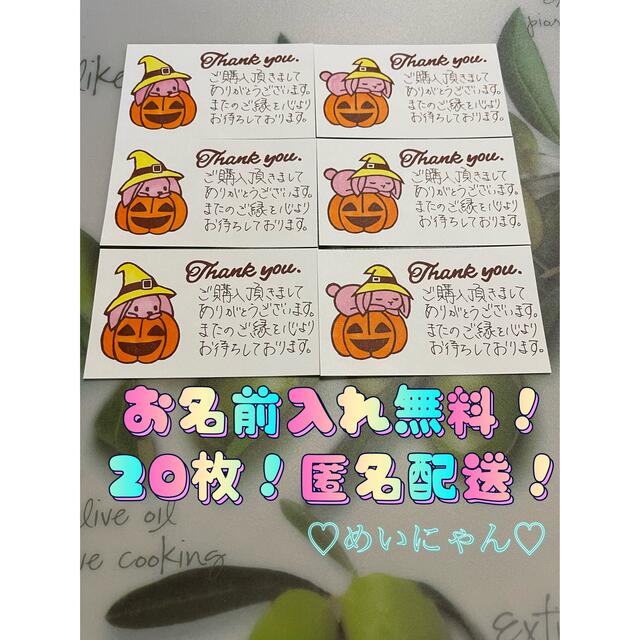 like
pian
Thank you.
ご購入頂きまして
ありがとうございます。
またのご縁を心より
お待ちしております。
Thank you.
ご購入頂きまして
ありがとうございます。
またのご縁を心より
お待ちしております。
Thank you.
ご購入頂きまして
ありがとうございます。
またのご縁を心より
お待ちしております。
Thank you.
ご購入頂きまして
ありがとうございます。
またのご縁を心より
お待ちしております。
Thank you.
ご購入頂きまして
ありがとうございます。
またのご縁を心より
お待ちしております。
Thank you.
ご購入頂きまして
ありがとうございます。
またのご縁を心より
お待ちしております。
お名前入れ無料！
20枚！匿名配送！
♡めいにゃん♡
live oil
ve cooking
extr